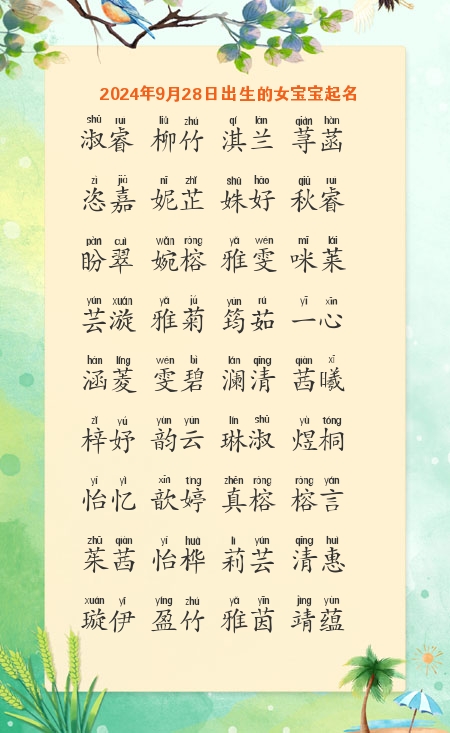 2024年9月28日出生的女宝宝起名
shū ruì liǔ zhú qí lán qián hàn
淑睿 柳竹 淇兰 荨菡
zì jiā nī zhǐ shū hǎo qiū ruì
恣嘉 妮芷 姝好 秋睿
pàn cuì wǎn róng yǎ wén mī lái
盼翠 婉榕 雅雯 咪莱
yún xuán yǎ jú yún rú yī xīn
芸漩 雅菊 筠茹 一心
hán líng wén bì lán qīng qiàn xī
涵菱 雯碧 澜清 茜曦
zǐ yú yùn yún lín shū yù tóng
梓妤 韵云 琳淑 煜桐
yí yì xīn tíng zhēn róng róng yán
怡忆 歆婷 真榕 榕言
zhū qiàn yí huà lì yún qīng huì
茱茜 怡桦 莉芸 清惠
xuán yī yíng zhú yǎ yīn jìng yùn
璇伊 盈竹 雅茵 靖蕴